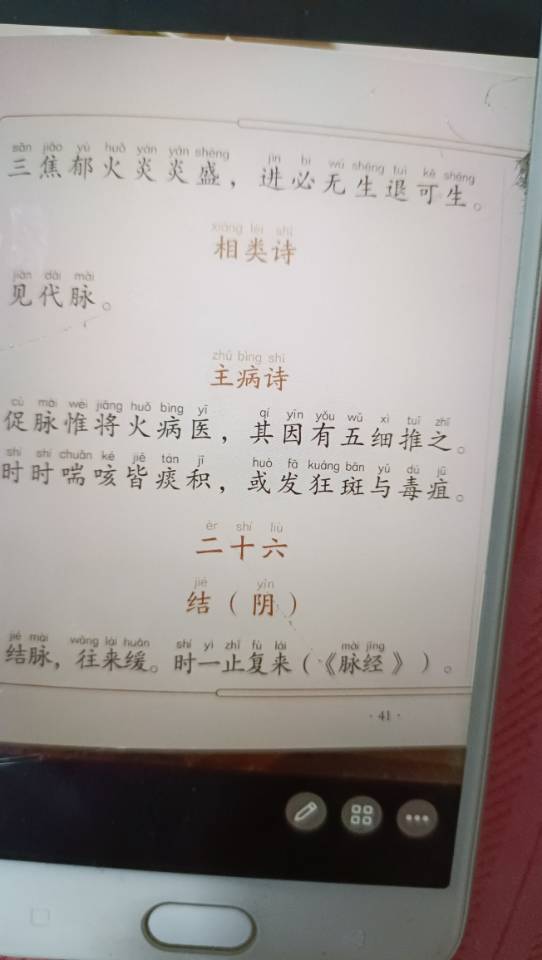 sān jiāo yù huǒ yán yán shèng jìn bì wú shēng tuì kě shēng
三焦郁火炎炎盛，进必无生退可生。
xiàng lèi shī
相类诗
jiàn dài mài
见代脉。
zhǔ bìng shī
主病诗
cù mài wéi jiāng huǒ bìng yī qí yīn yǒu wǔ xì tuī zhī
促脉惟将火病医，其因有五细推之。
shí shí chuǎn ké jiē tán jī huò fà kuáng bān yǔ dú jū
时时喘咳皆痰积，或发狂斑与毒疽。
èr shí liù
二十六
jié yīn
结（阴）
jié mài wǎng lái huǎn shí yì zhǐ fù lái mài jīng
结脉，往来缓。时一止复来（《脉经》）。
·41·